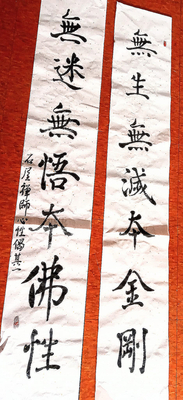 無生無滅本金剛
無迷無悟本佛性
石屋禪師心性偈其一